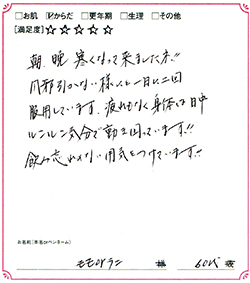 □お肌 ☑からだ □更年期 □生理 □その他
[満足度]☆☆☆☆☆
朝、晩 寒くなって来ました!!
風邪引かない様に一日二回
服用しています。疲れもなく身体は日中
ルンルン気分で動き回っています!!
飲み忘れない用気をつけています!!
お名前[本名orペンネーム]
モモorラニ 様 60代 歳